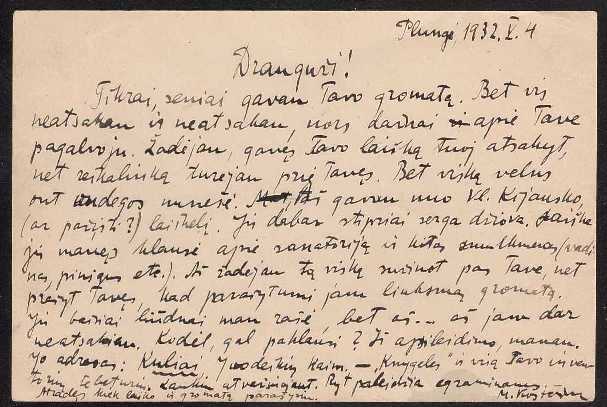 Plungė, 1932.V.4
Drauguži!
Tikrai, seniai gavau Tavo gromatą. Bet vis
neatsakau ir neatsakau, nors dažnai apie Tave
pagalvoju. Žadėjau, gavęs Tavo laišką tuoj atsakyt,
net reikališką turėjau prie Tavęs. Bet viską velns
ont uodegos nunešė. Aš gavau nuo Vl. Kijausko,
(ar pažįsti?) laiškelį. Jis dabar stipriai serga džiova. Laiške
jis manęs klausė apie sanatoriją ir kitas smulkmenas (vadi
nas, pinigus etc.). Aš žadėjau tą viską sužinot pas Tave, net
prašyt Tavęs, kad parašytumi jam linksmą gromatą.
Jis baisiai liūdnai man rašė, bet aš... aš jam dar
neatsakiau. Kodėl, gal paklausi? Iš apsileidimo, manau.
Jo adresas: Kuliai, kaim. – „Knygeles" ir visą Tavo
tebeturiu. Lauksiu atvežiojant. Ryt egzaminams.
Atradęs kiek laiko ir gromatą parašysiu.
M.